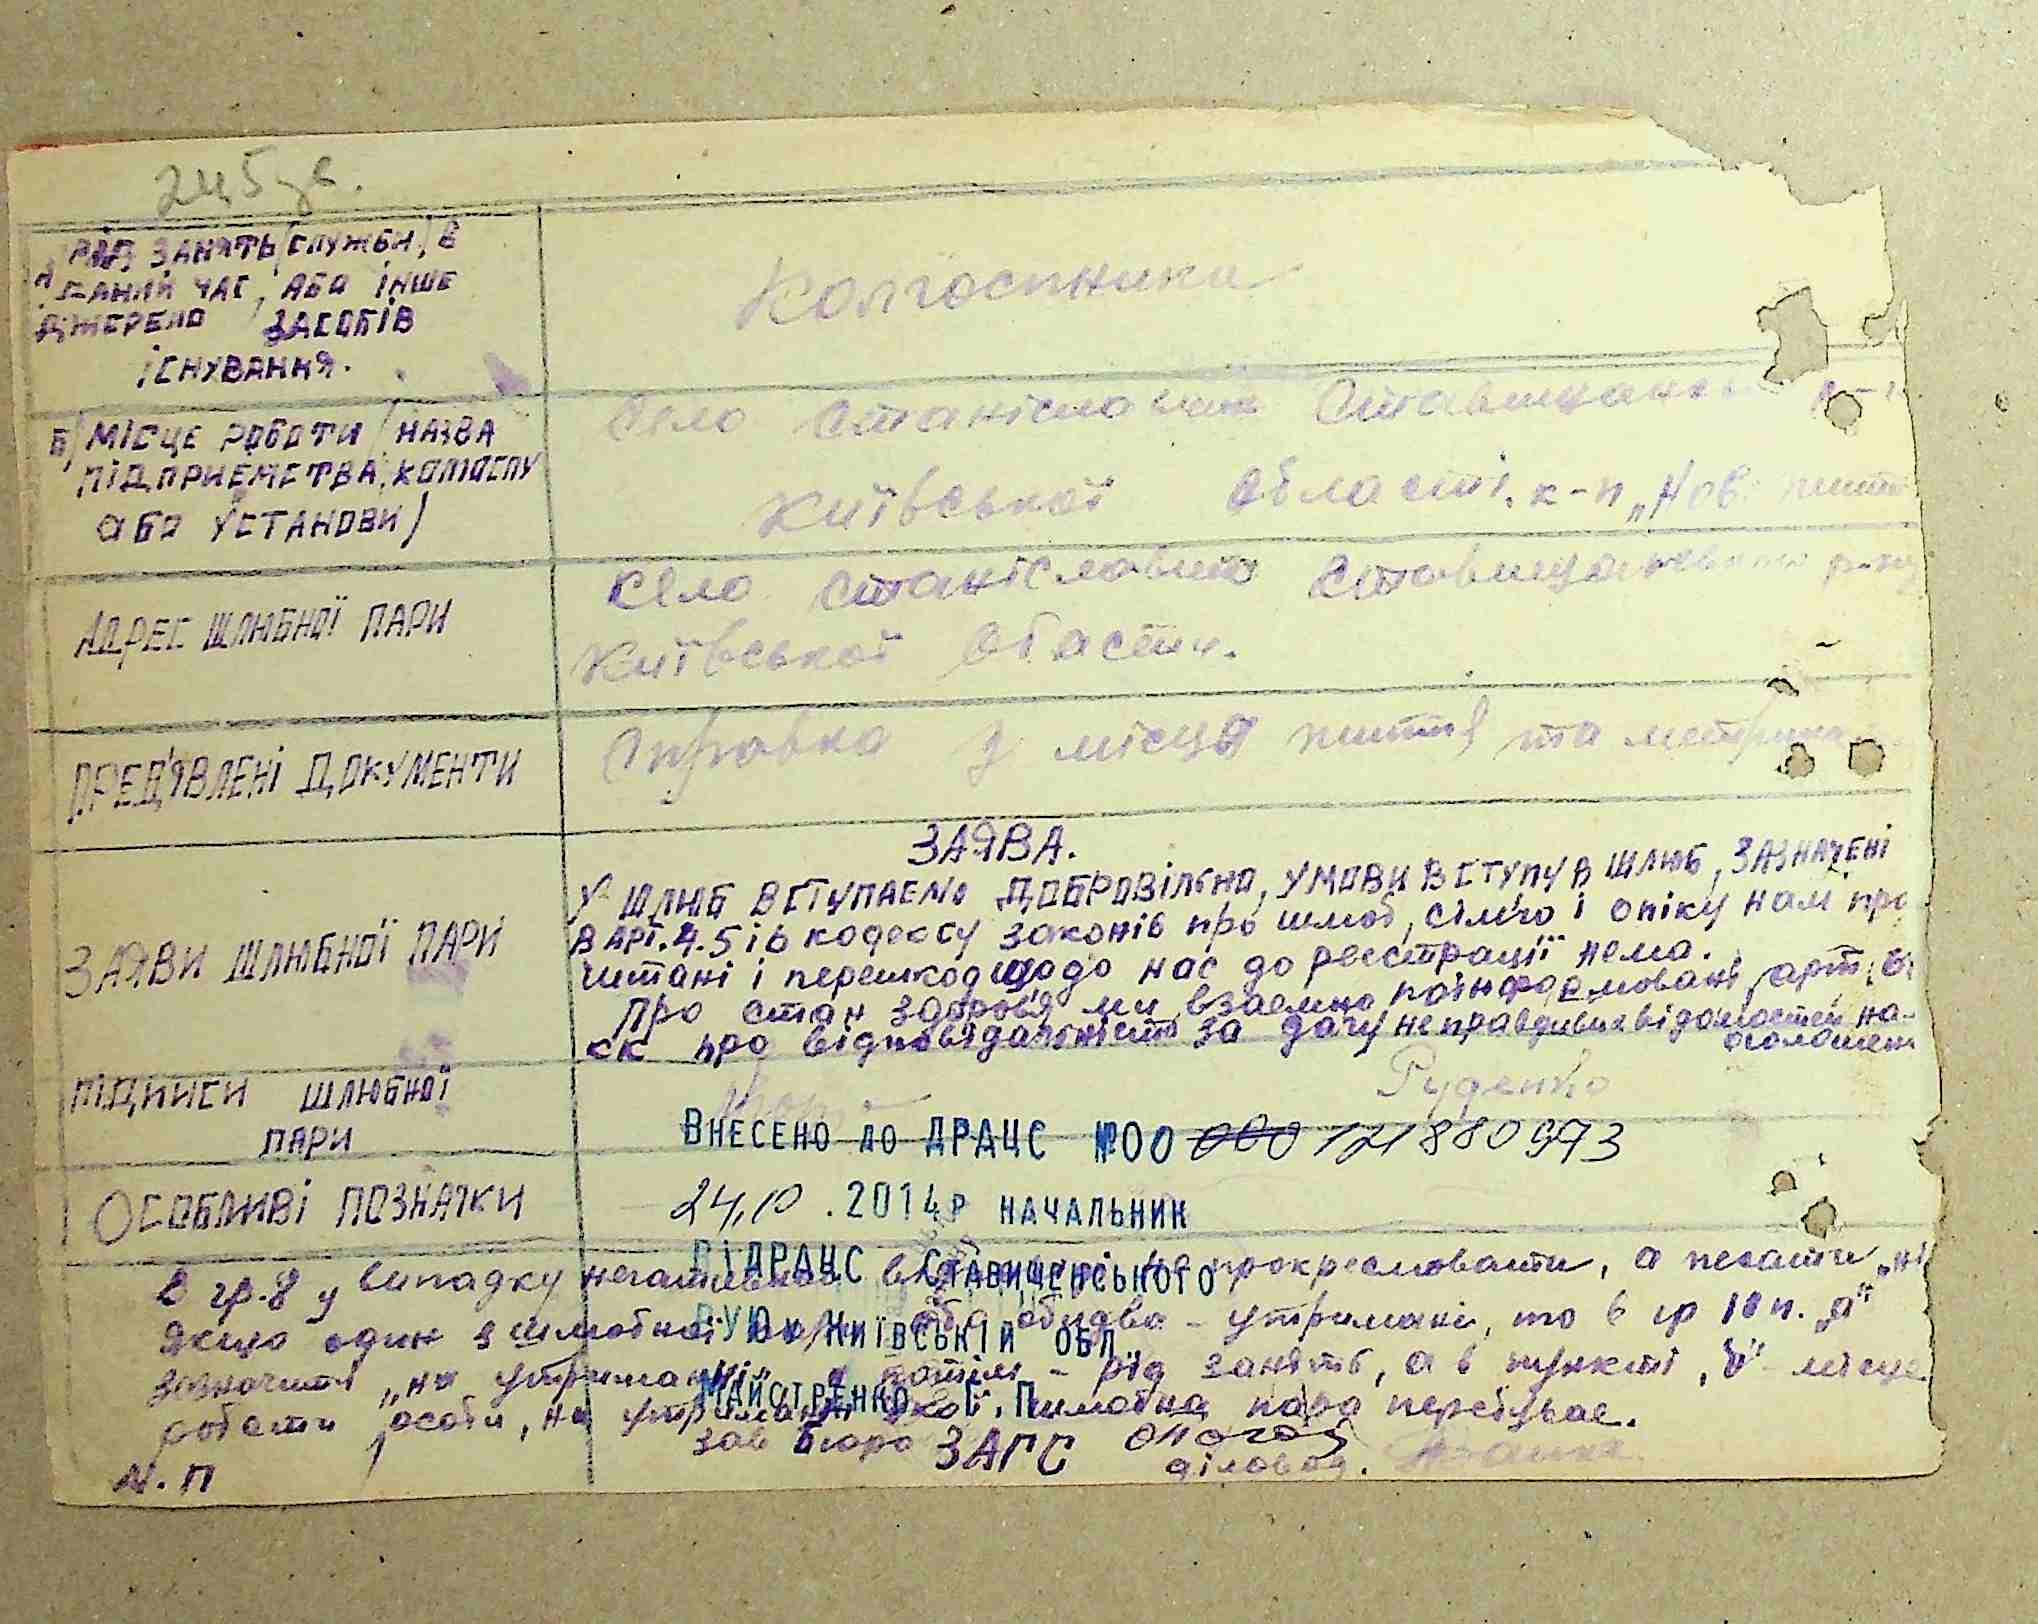 245 зв.
А/ РІД ЗАНЯТЬ /СЛУЖБИ/ В
ДАНИЙ ЧАС, АБО ІНШЕ
ДЖЕРЕЛО ЗАСОБІВ
ІСНУВАННЯ.
Колгоспники
Б/ МІСЦЕ РОБОТИ /НАЗВА
ПІДПРИЄМСТВА, КОЛГОСПУ
або УСТАНОВИ/
Село Станіславчик Ставищанськ
Київської області. к-п „Нов
АДРЕС ШЛЮБНОЇ ПАРИ
село Станіславчик Ставищанського р-ну
Київської обасти.
ПРЕД'ЯВЛЕНІ ДОКУМЕНТИ
Справка з місця життя та метрика
ЗАЯВИ ШЛЮБНОЇ ПАРИ
ЗАЯВА.
У ШЛЮБ ВСТУПАЄМО ДОБРОВІЛЬНО, УМОВИ ВСТУПУ В ШЛЮБ, ЗАЗНАЧЕНІ
В АРТ. 4. 5 і 6 кодексу законів про шлюб, сім'ю і опіку нам про
читані і перешкод щодо нас до реєстрації нема.
Про стан здоров'я ми взаємно поінформовані, арт.
КК про відповідальність за дачу неправдивих відомостей на-
оголошен
ПІДПИСИ ШЛЮБНОЇ
ПАРИ
Руденко
ВНЕСЕНО ДО ДРАЦС №00 000 121880973
ОСОБЛИВІ ПОЗНАЧКИ
24.10.2014р НАЧАЛЬНИК
ВІДРАЦС СТАВИЩЕНСЬКОГО
РУЮ у КИЇВСЬКІЙ ОБЛ
МАЙСТРЕНКО Г. П.
В гр. 8 у випадку прокреслювати, а писати „ні
Якщо один з шлюбної або обидва - утриманці, то в гр 10 п. „а"
зазначити „на утриманні", а потім - рід занять, а в пункті „б" місце
роботи особи, на утриманні якої шлюбна пара перебуває.
М. П
Зав Бюро ЗАГС
діловод.